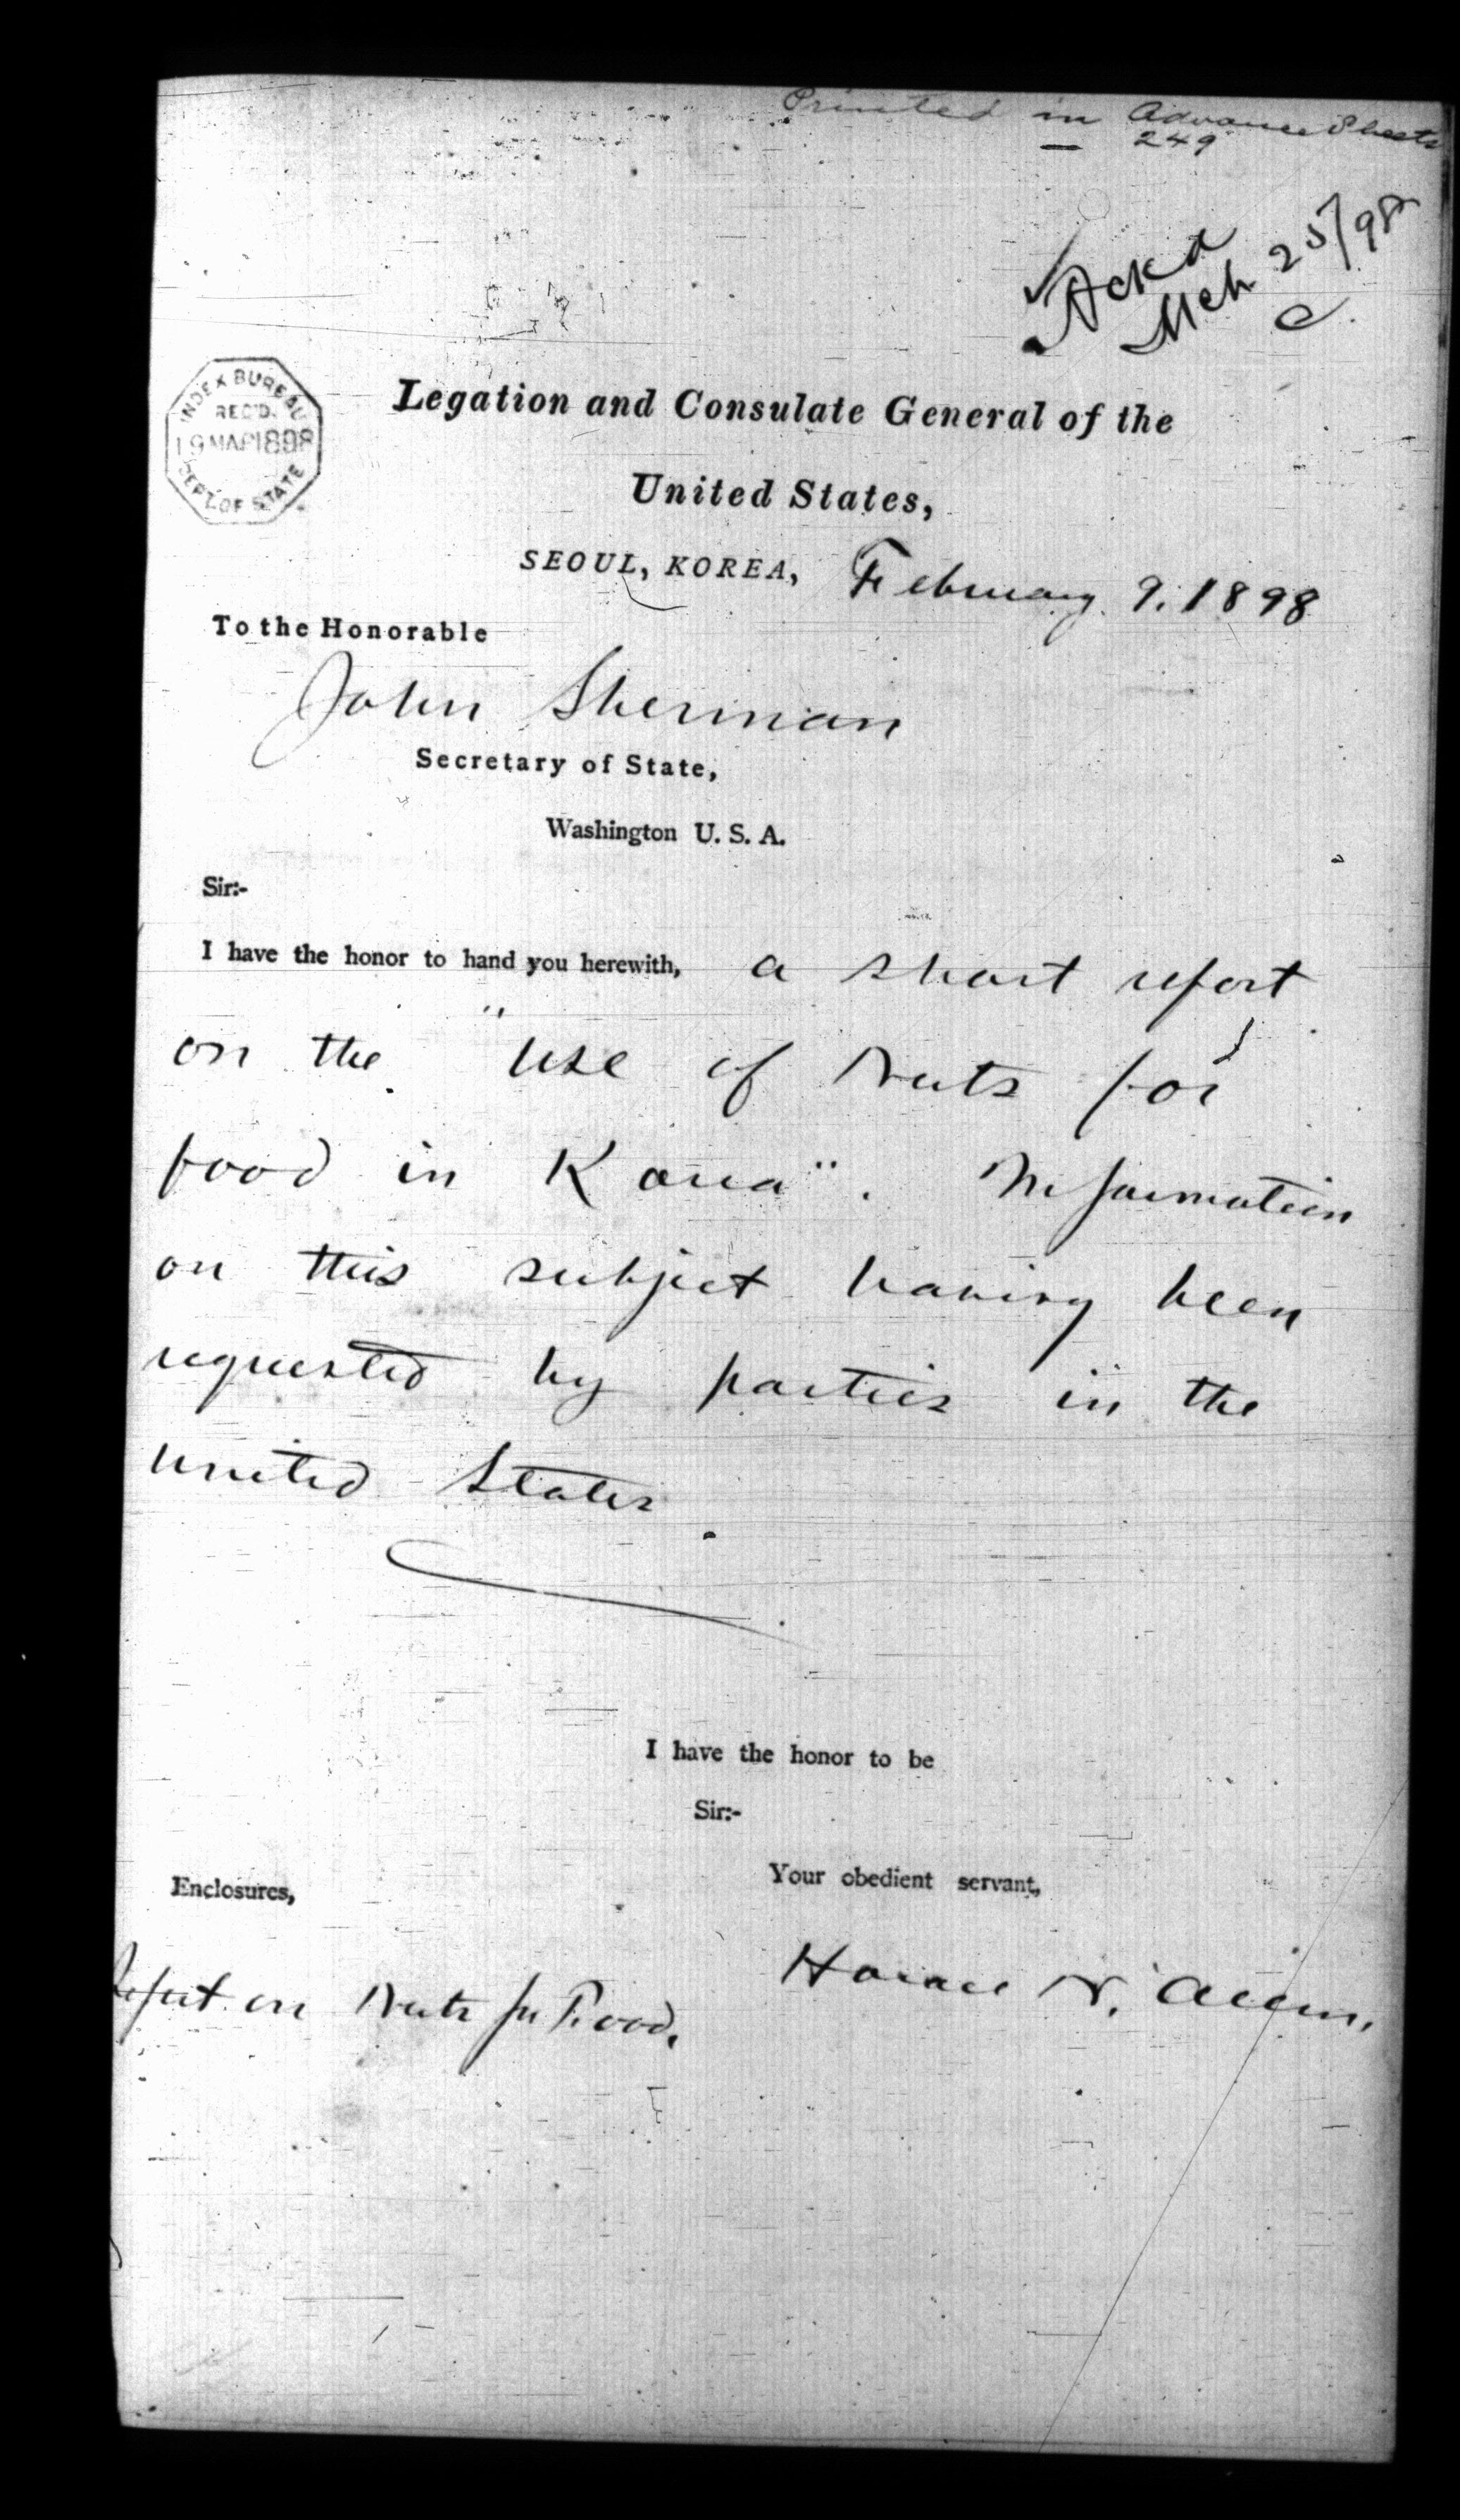 Printed in Advance Sheets
249
Ackd
Mch 25/98
C.
INDEX BUREAU
REC'D.
19 MAR 1898
DEPT. OF STATE
Legation and Consulate General of the
United States,
SEOUL, KOREA, February 9. 1898
To the Honorable
John Sherman
Secretary of State,
Washington U. S. A.
Sir:-
I have the honor to hand you herewith, a short report
on the "Use of Nuts for
food in Korea". Information
on this subject having been
requested by parties in the
United States.
I have the honor to be
Sir:-
Enclosures,
Your obedient servant,
Report on Nuts for Food.
Horace N. Allen.